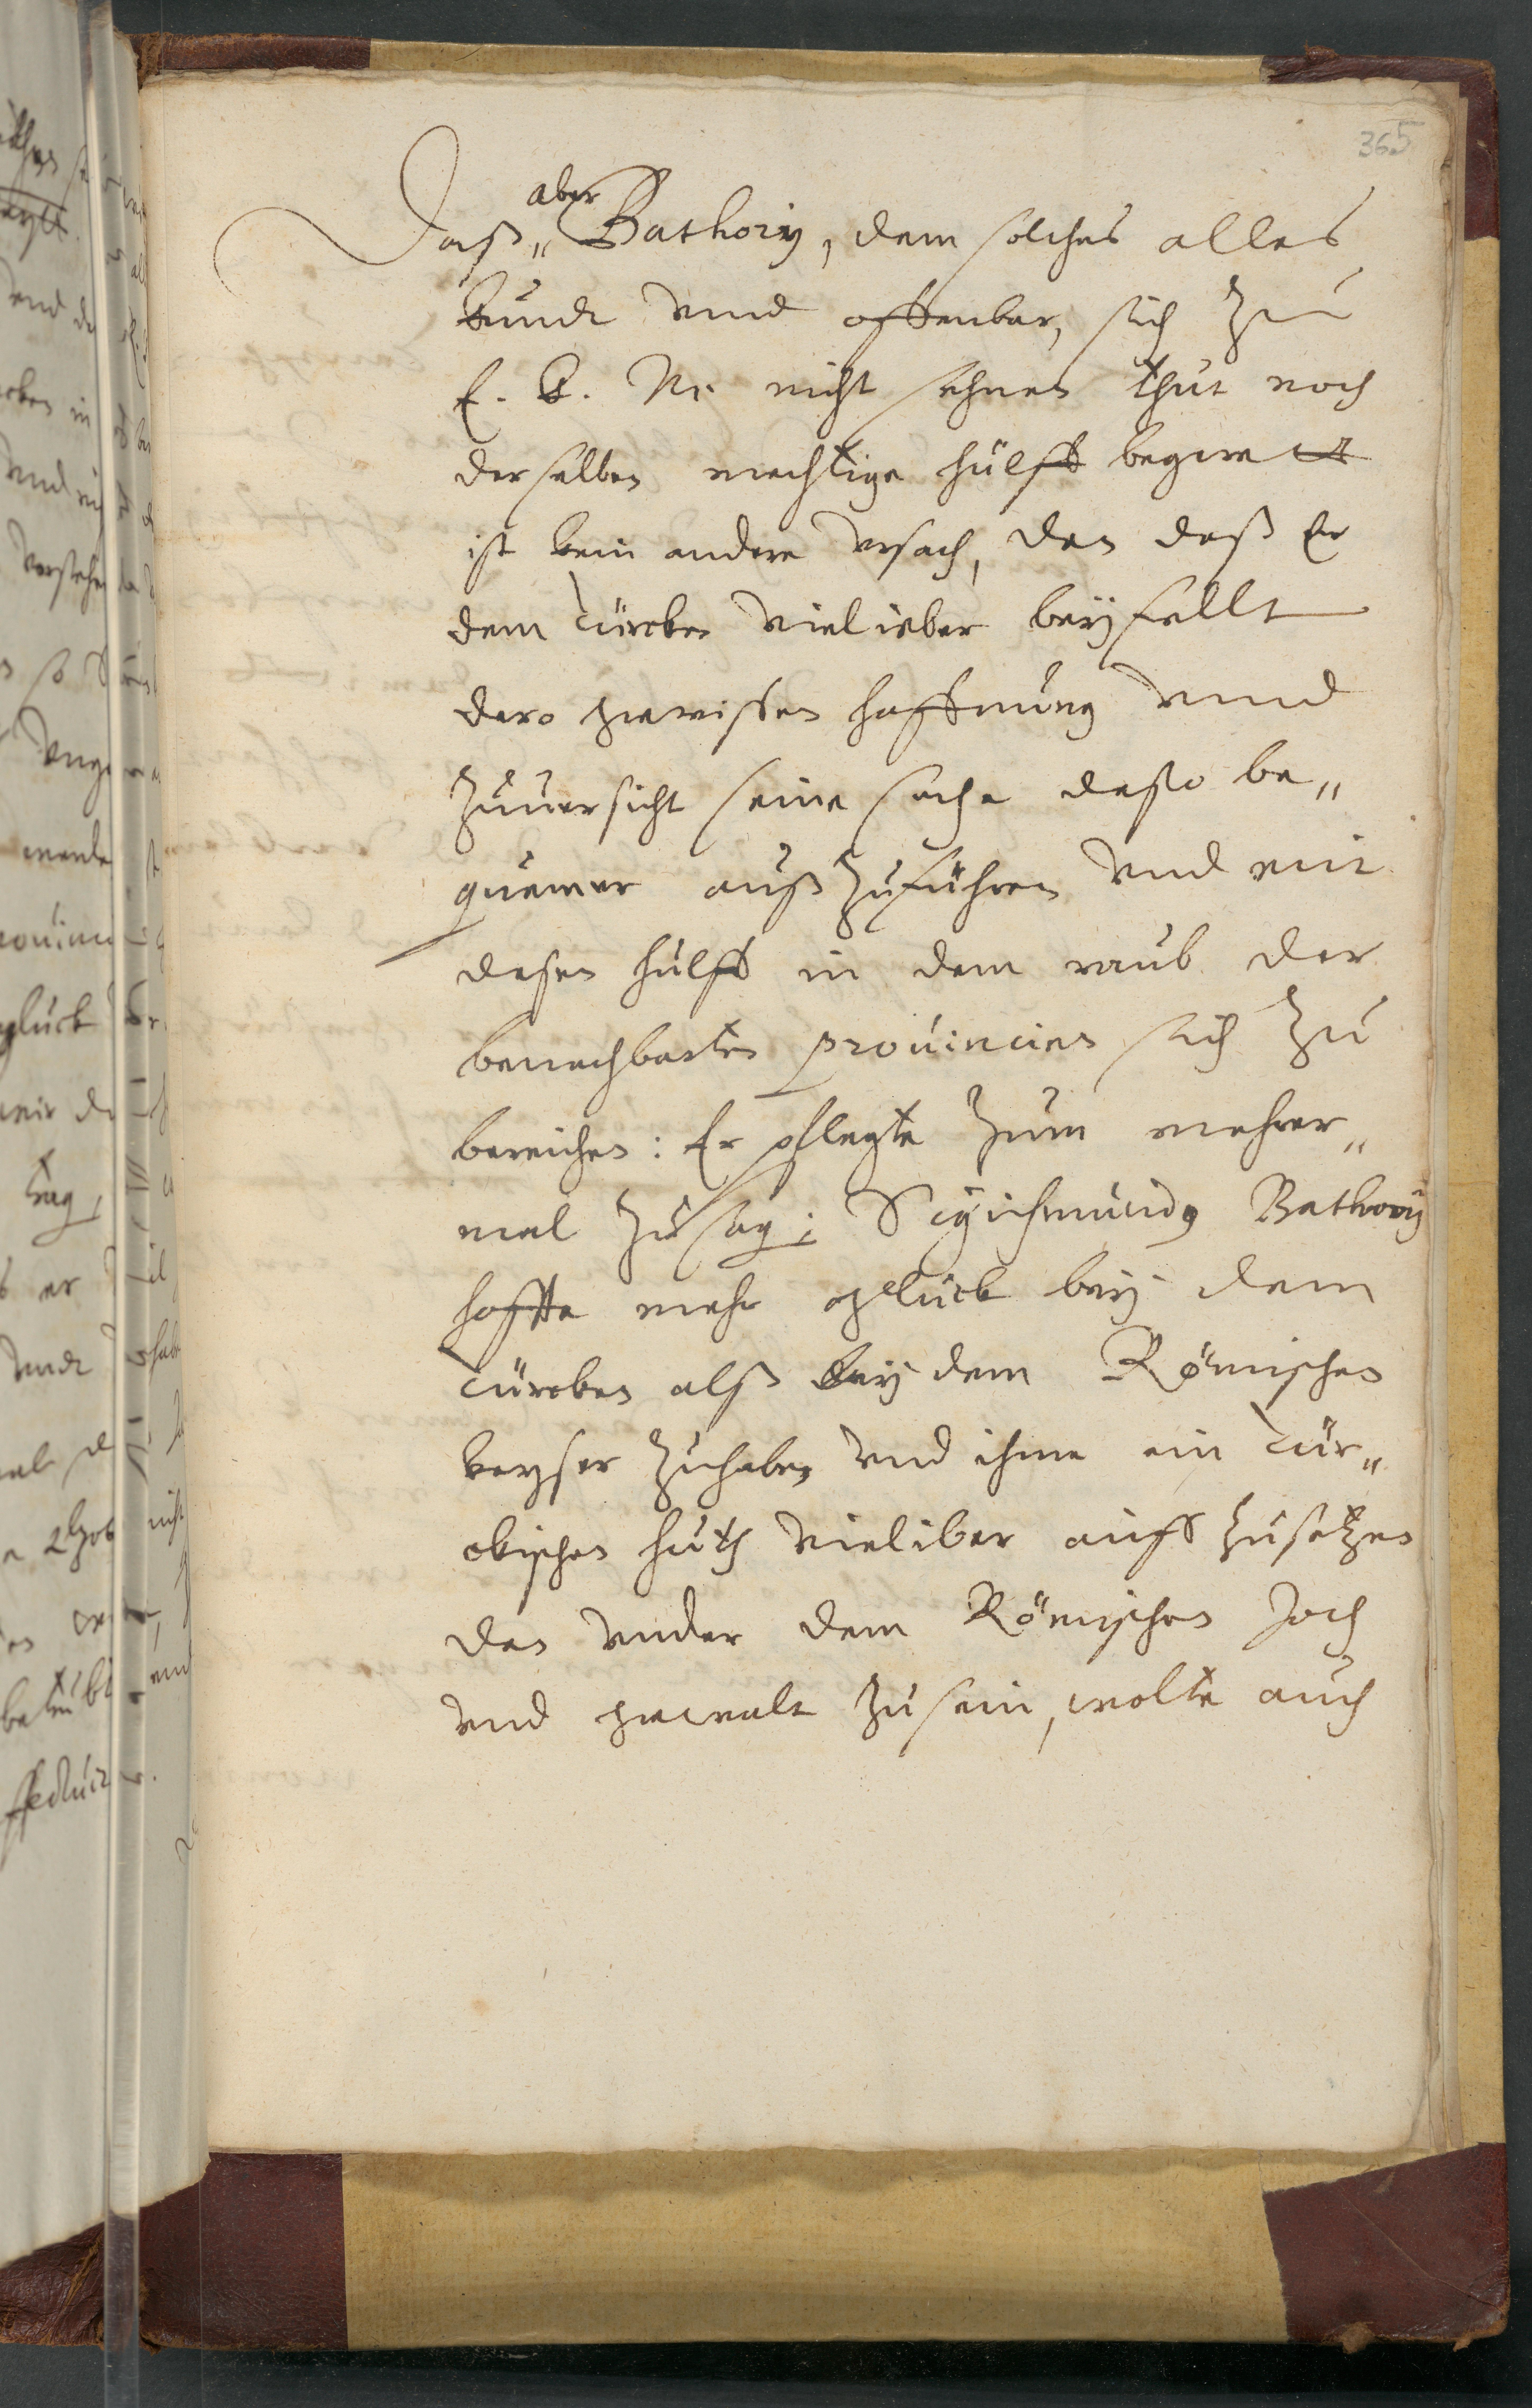 365
aber
Daß„ Bathorÿ, dem solches alles
kundt vnnd offenbar, sich zu
E. K. M. nicht sehnen thut noch
derselben mechtige hülff begeret
ist kein andere vrsach, den daß Er
dem Türcken vielieber beÿfellt
dero gewissen hoffnung vnnd
zuuersicht seine sache desto be„
quemer außzuführen vnd mit
desen hülff in dem raub der
benachbarten prouincien sich zu
bereichen: Er pflegte zum mehrer„
mal zusag: Sigismundus Bathorÿ
hoffte mehr glück beÿ dem
Türcken alß beÿ dem Römischen
keyser zuhaben vnd ihme ein Tür„
ckischen huth vieliber auff zusetzen
den vnder dem Römischen Joch
vnd gewalt zu sein, wolte auch